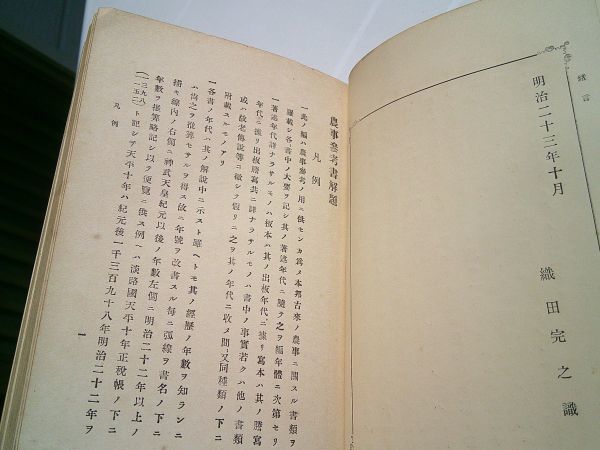 緒言
明治二十三年十月
織田完之識
農事參考書解題
凡例
一此ノ編ハ農事參考ノ用ニ供センカ爲メ本邦古來ノ農事ニ關スル書類ヲ
羅載シ各書中ノ大要ヲ記シ其ノ著述年代ニ隨テ之ヲ編年體ニ次第セリ
一著述年代詳ナラサルモノハ板本ハ其ノ出板年代ニ據リ寫本ハ其ノ謄寫
年代ニ據リ出板謄寫共ニ詳ナラサルモノハ書中ノ事實若クハ他ノ書類
或ハ故老傳說等ニ徵シテ假リニ之ヲ其ノ年代ニ收メ間〻又同種類ノ下ニ
附載スルモノアリ
一各書ノ年代ハ其ノ解說中ニ示スト雖ヘトモ其ノ經歷ノ年數ヲ知ランニ
ハ尙之ヲ推算セサルヲ得ス故ニ年號ヲ改書スル每ニ弧線ヲ書名ノ下ニ
描キ線內ノ右側ニ神武天皇紀元以後ノ年數左側ニ明治二十二年以上ノ
年數ヲ推算略記シ以テ便覽ニ供ス例ヘハ淡路國天平十年正稅帳ノ下ニ
(一三九八/一一五二)ト記シテ天平十年ハ紀元後一千三百九十八年明治二十二年ヲ
凡例
一